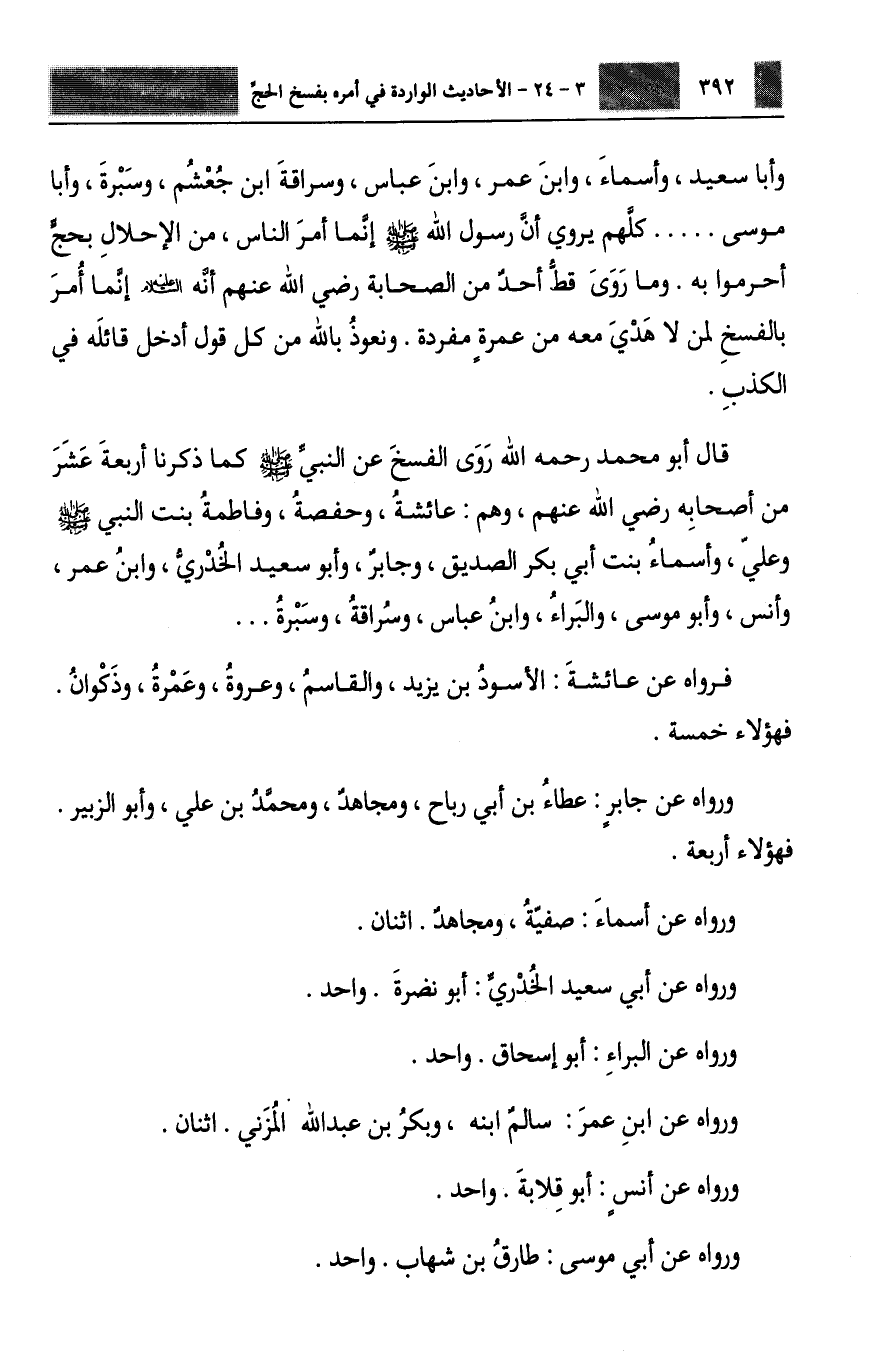 ٣٩٢ ٣ - ٢٤ - الأحاديث الواردة في أمره بفسخ الحجِّ
وأبا سعيد ، وأسماءَ ، وابنَ عمر ، وابنَ عباس ، وسراقةَ ابن جُعْشُم ، وسَبْرةَ ، وأبا
موسى ..... كلَّهم يروي أنَّ رسول الله ﷺ إنَّما أمرَ الناس ، من الإحلالِ بحجٍّ
أحرموا به . وما رَوَىَ قطُّ أحدٌ من الصحابة رضي الله عنهم أنَّه عليه السلام إنَّما أُمرَ
بالفسخِ لمن لا هَدْيَ معه من عمرةٍ مفردة . ونعوذُ بالله من كل قول أدخل قائلَه في
الكذبِ .
قال أبو محمد رحمه الله رَوَى الفسخَ عن النبيِّ ﷺ كما ذكرنا أربعةَ عَشَرَ
من أصحابِه رضي الله عنهم ، وهم : عائشةُ ، وحفصةُ ، وفاطمةُ بنت النبي ﷺ
وعليّ ، وأسماءُ بنت أبي بكر الصديق ، وجابرٌ ، وأبو سعيد الخُدْريُّ ، وابنُ عمر ،
وأنس ، وأبو موسى ، والبَراءُ ، وابنُ عباس ، وسُراقةُ ، وسَبْرةُ ...
فرواه عن عائشةَ : الأسودُ بن يزيد ، والقاسمُ ، وعروةُ ، وعَمْرةُ ، وذَكْوانُ .
فهؤلاء خمسة .
ورواه عن جابرٍ : عطاءُ بن أبي رباح ، ومجاهدٌ ، ومحمَّدُ بن علي ، وأبو الزبير .
فهؤلاء أربعة .
ورواه عن أسماءَ : صفيّةُ ، ومجاهدٌ . اثنان .
ورواه عن أبي سعيد الخُدْريِّ : أبو نضرةَ . واحد .
ورواه عن البراءِ : أبو إسحاق . واحد .
ورواه عن ابنِ عمرَ : سالمٌ ابنه ، وبكرُ بن عبدالله المُزَني . اثنان .
ورواه عن أنسٍ : أبو قِلابةَ . واحد .
ورواه عن أبي موسى : طارقُ بن شهاب . واحد .